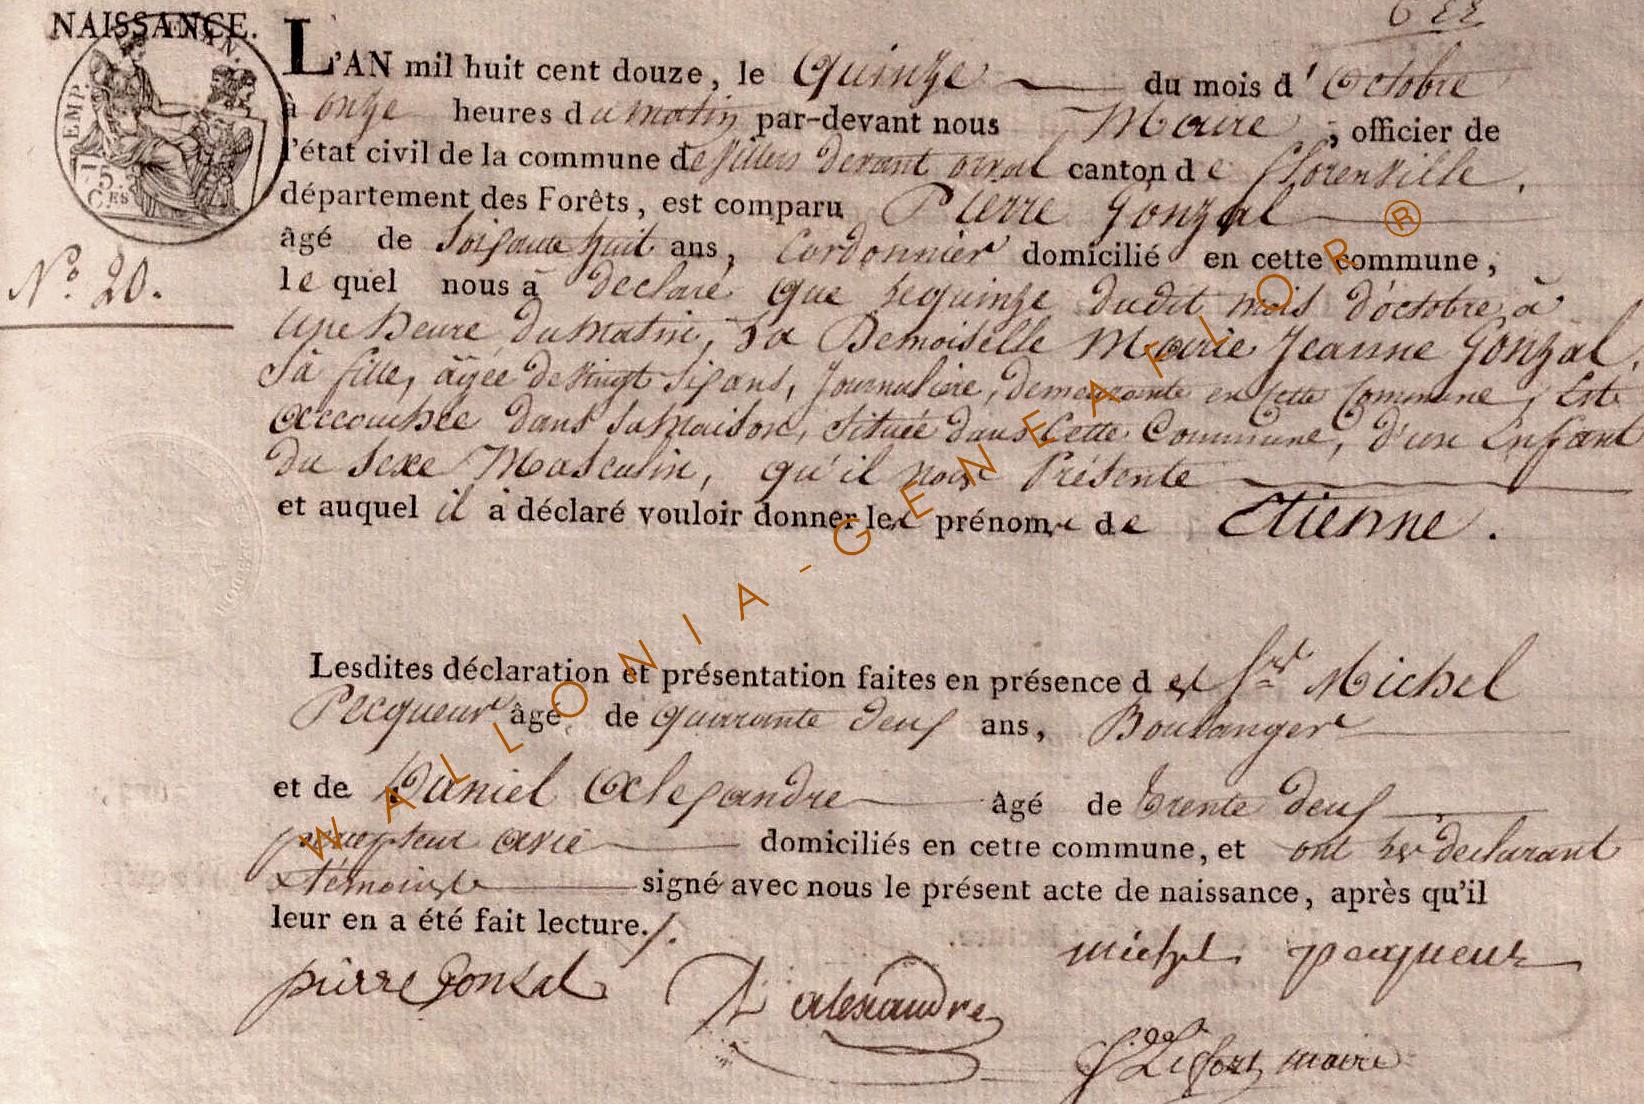 NAISSANCE.
EMP.
15
CES
N.º 20.
L'AN mil huit cent douze, le Quinze du mois d' Octobre
à onze heures du matin par-devant nous Maire, officier de
l'état civil de la commune de Villers devant orval canton de florenville.
département des Forêts, est comparu Pierre Gonzal
âgé de Soixante huit ans, Cordonnier domicilié en cette commune,
le quel nous à declaré que le quinze dudit mois d'octobre à
Une heure du Matin, la Demoiselle Marie Jeanne Gonzal,
Sà fille, âgée de Vingt Six ans, Journaliere, demeurante en Cette Commune, Est
accouchée dans sa Maison, située dans Cette Commune, d'un Enfant
du Sexe Masculin, qu'il nous Présente
et auquel il à déclaré vouloir donner le prénom de Etienne.
Lesdites déclaration et présentation faites en présence de Michel
Pecqueur âgé de quarante deux ans, Boulanger
et de Daniel Alexandre âgé de trente deux
domiciliés en cette commune, et ont les declarant
signé avec nous le présent acte de naissance, après qu'il
leur en a été fait lecture./.
pierre Gonzal
alexandre
michel pecqueur
maire
WALLONIA-GENEAFLOR®